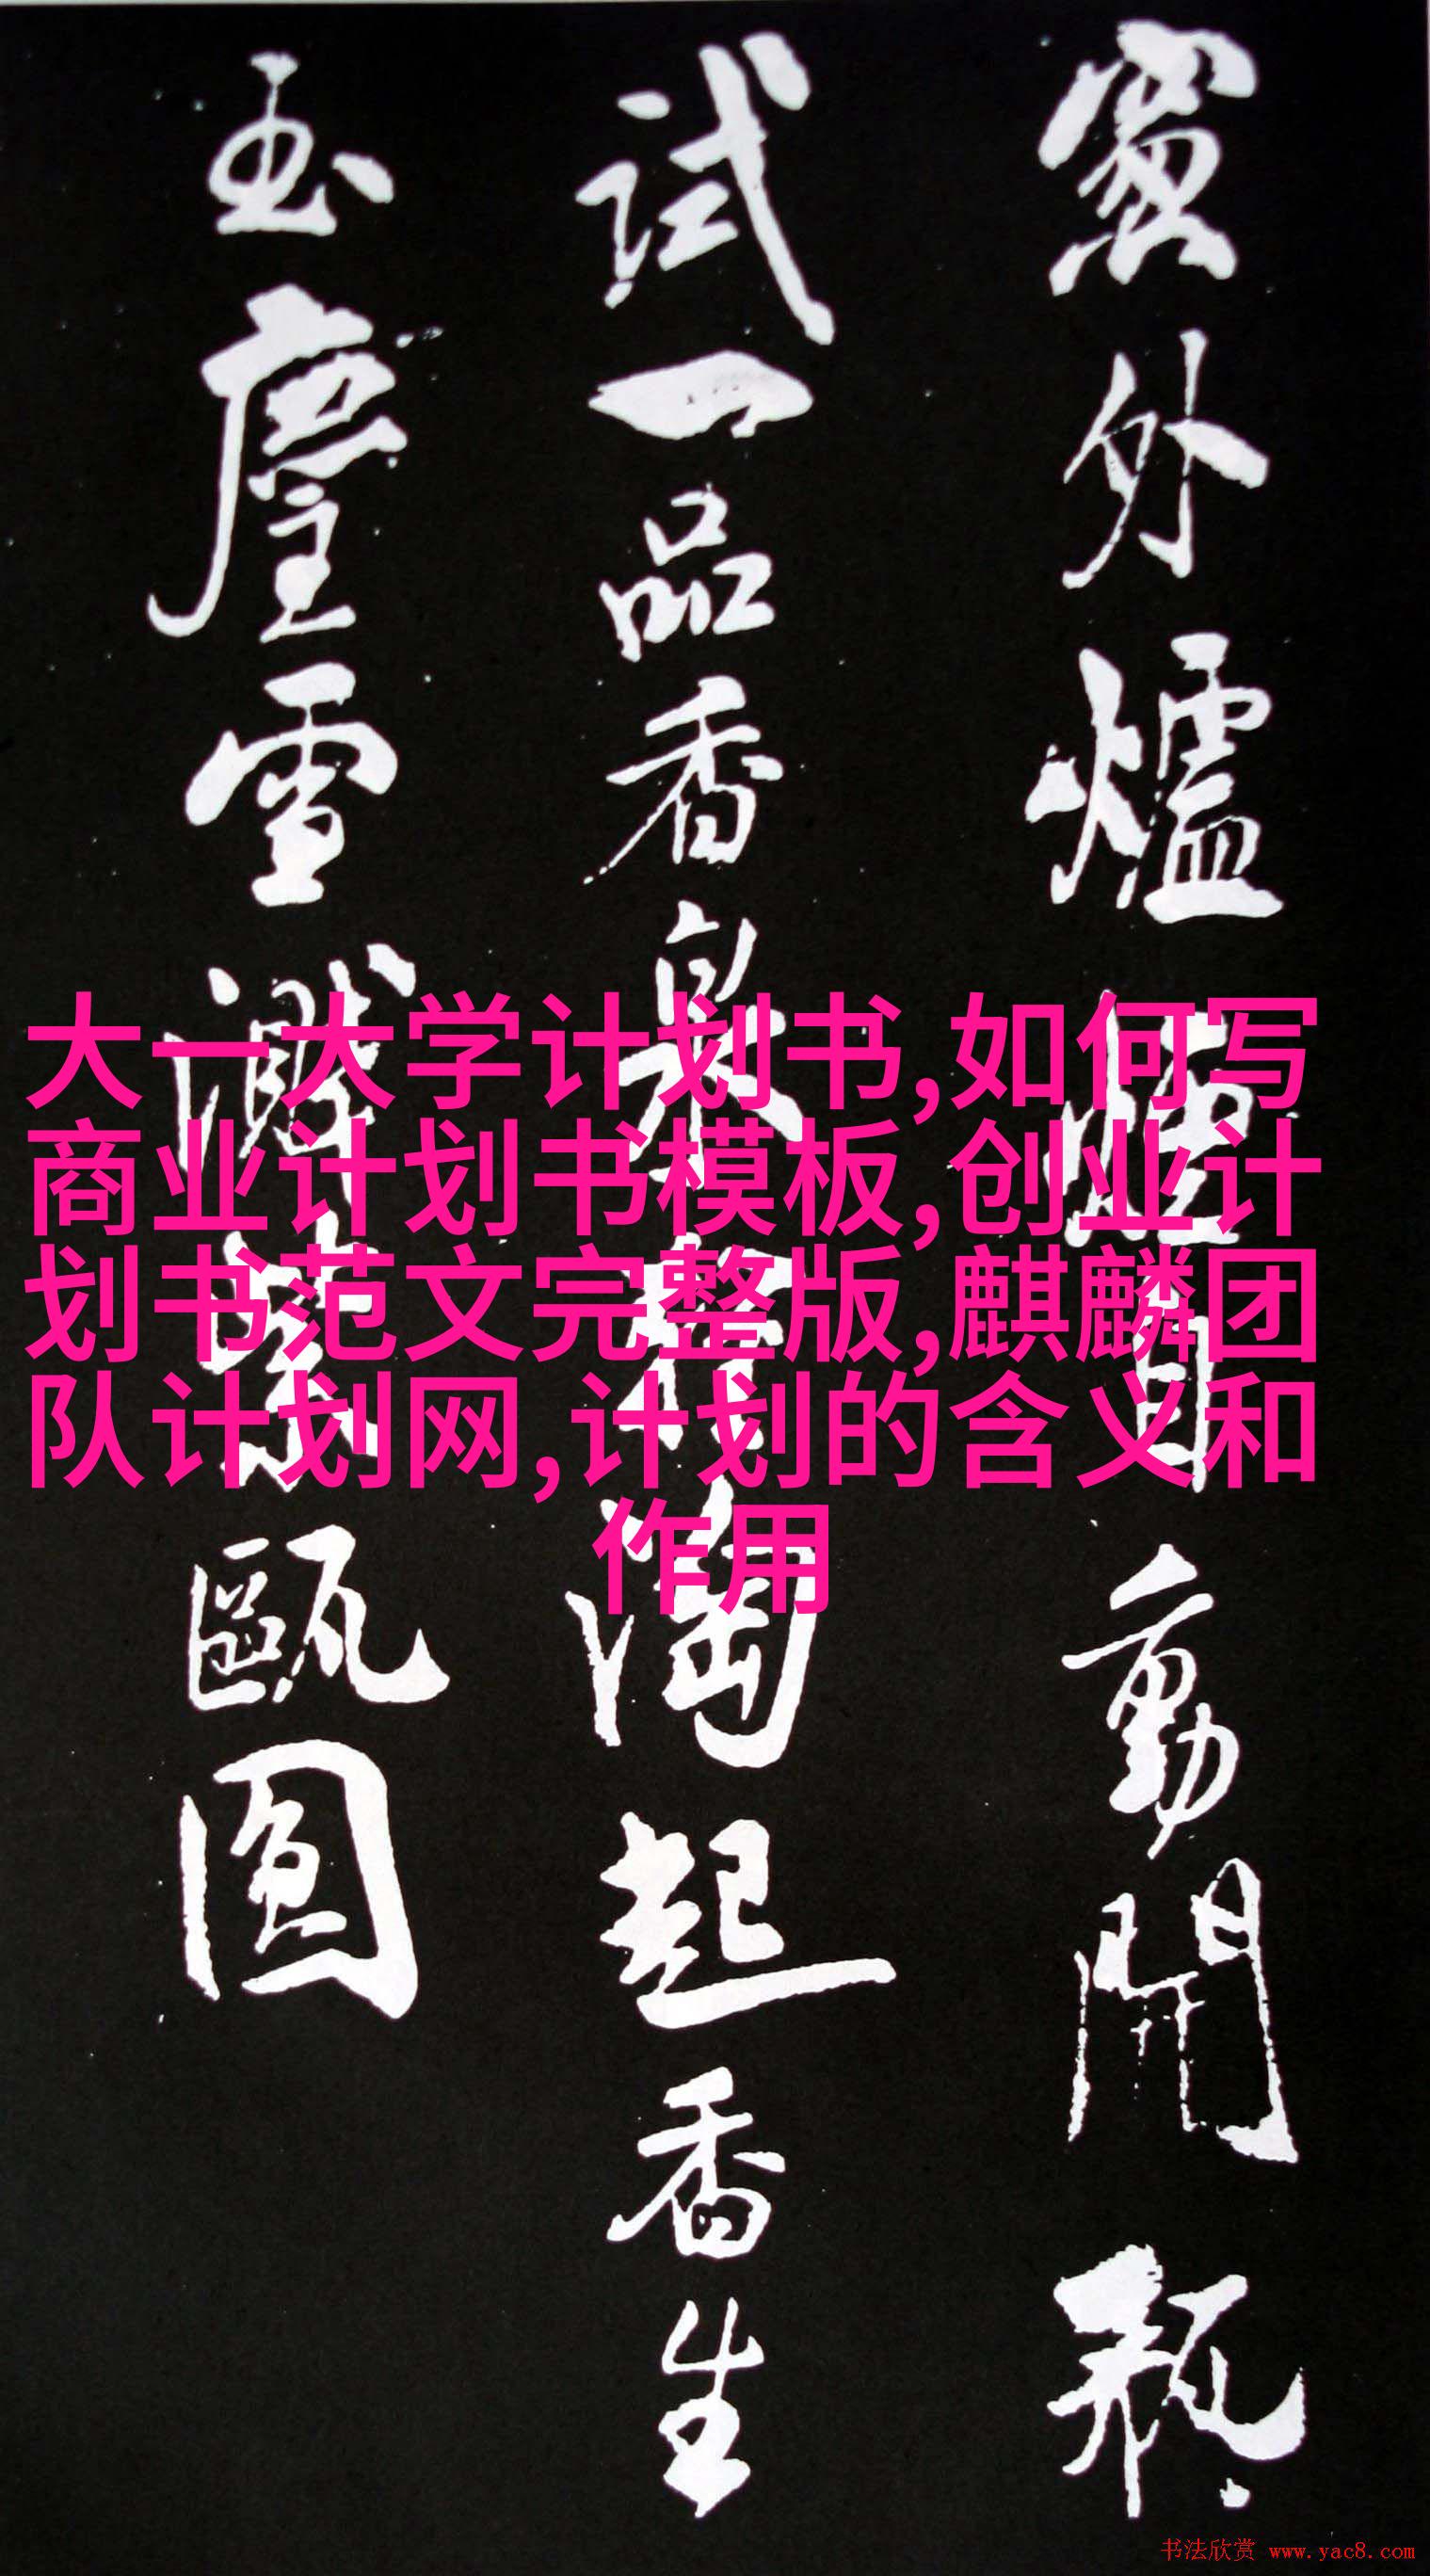 窗外爐煙自動開瓶
試一品香泉輕濤起香生
玉塵雪濺紫甌圓
大一大学计划书,如何写
商业计划书模板,创业计
划书范文完整版,麒麟团
队计划网,计划的含义和
作用
书法欣赏 www.yac8.com